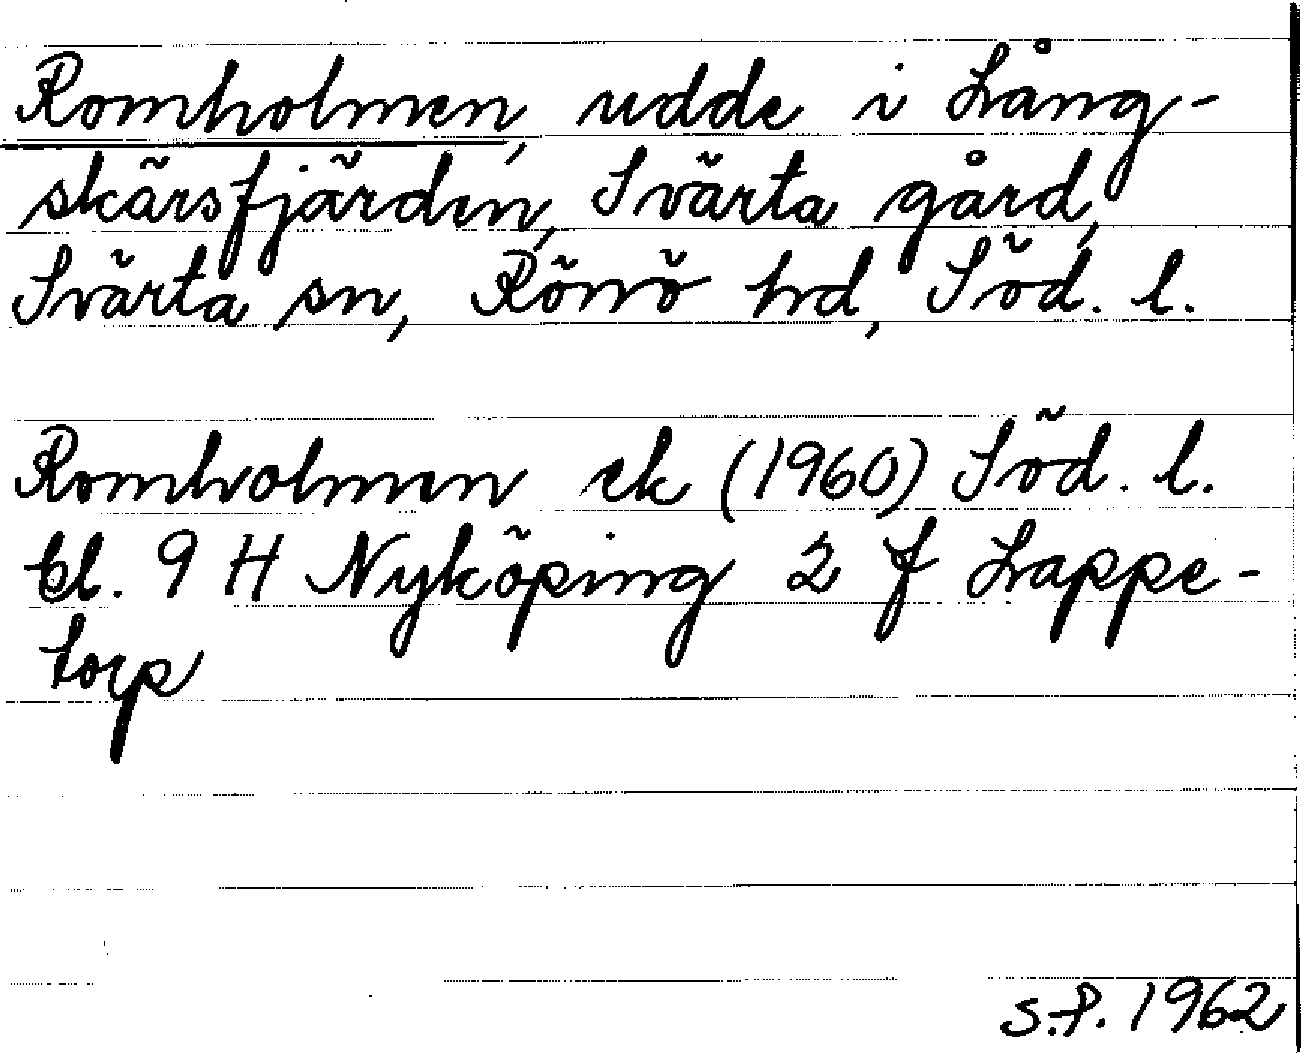 Romholmen, udde i Lång-
skärsfjärden, Svärta gård,
Svärta sn, Rönö hd, Söd. l.
Romholmen ek (1960) Söd. l.
bl. 9 H Nyköping 2 f Lappe-
torp
S.P. 1962